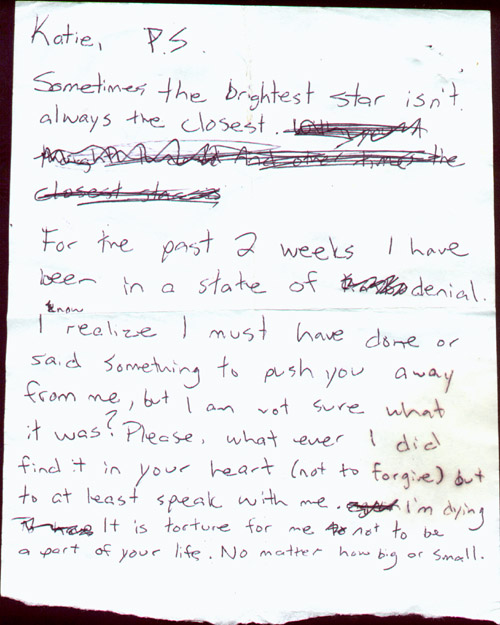 Katie, P.S.
Sometimes the brightest star isn't
always the closest.
And other times the
closest
For the past 2 weeks I have
been in a state of denial.
know
I realize I must have done or
said something to push you away
from me, but I am not sure what
it was? Please, what ever I did
find it in your heart (not to forgive) but
to at least speak with me. I'm dying
It is torture for me not to be
a part of your life. No matter how big or small.